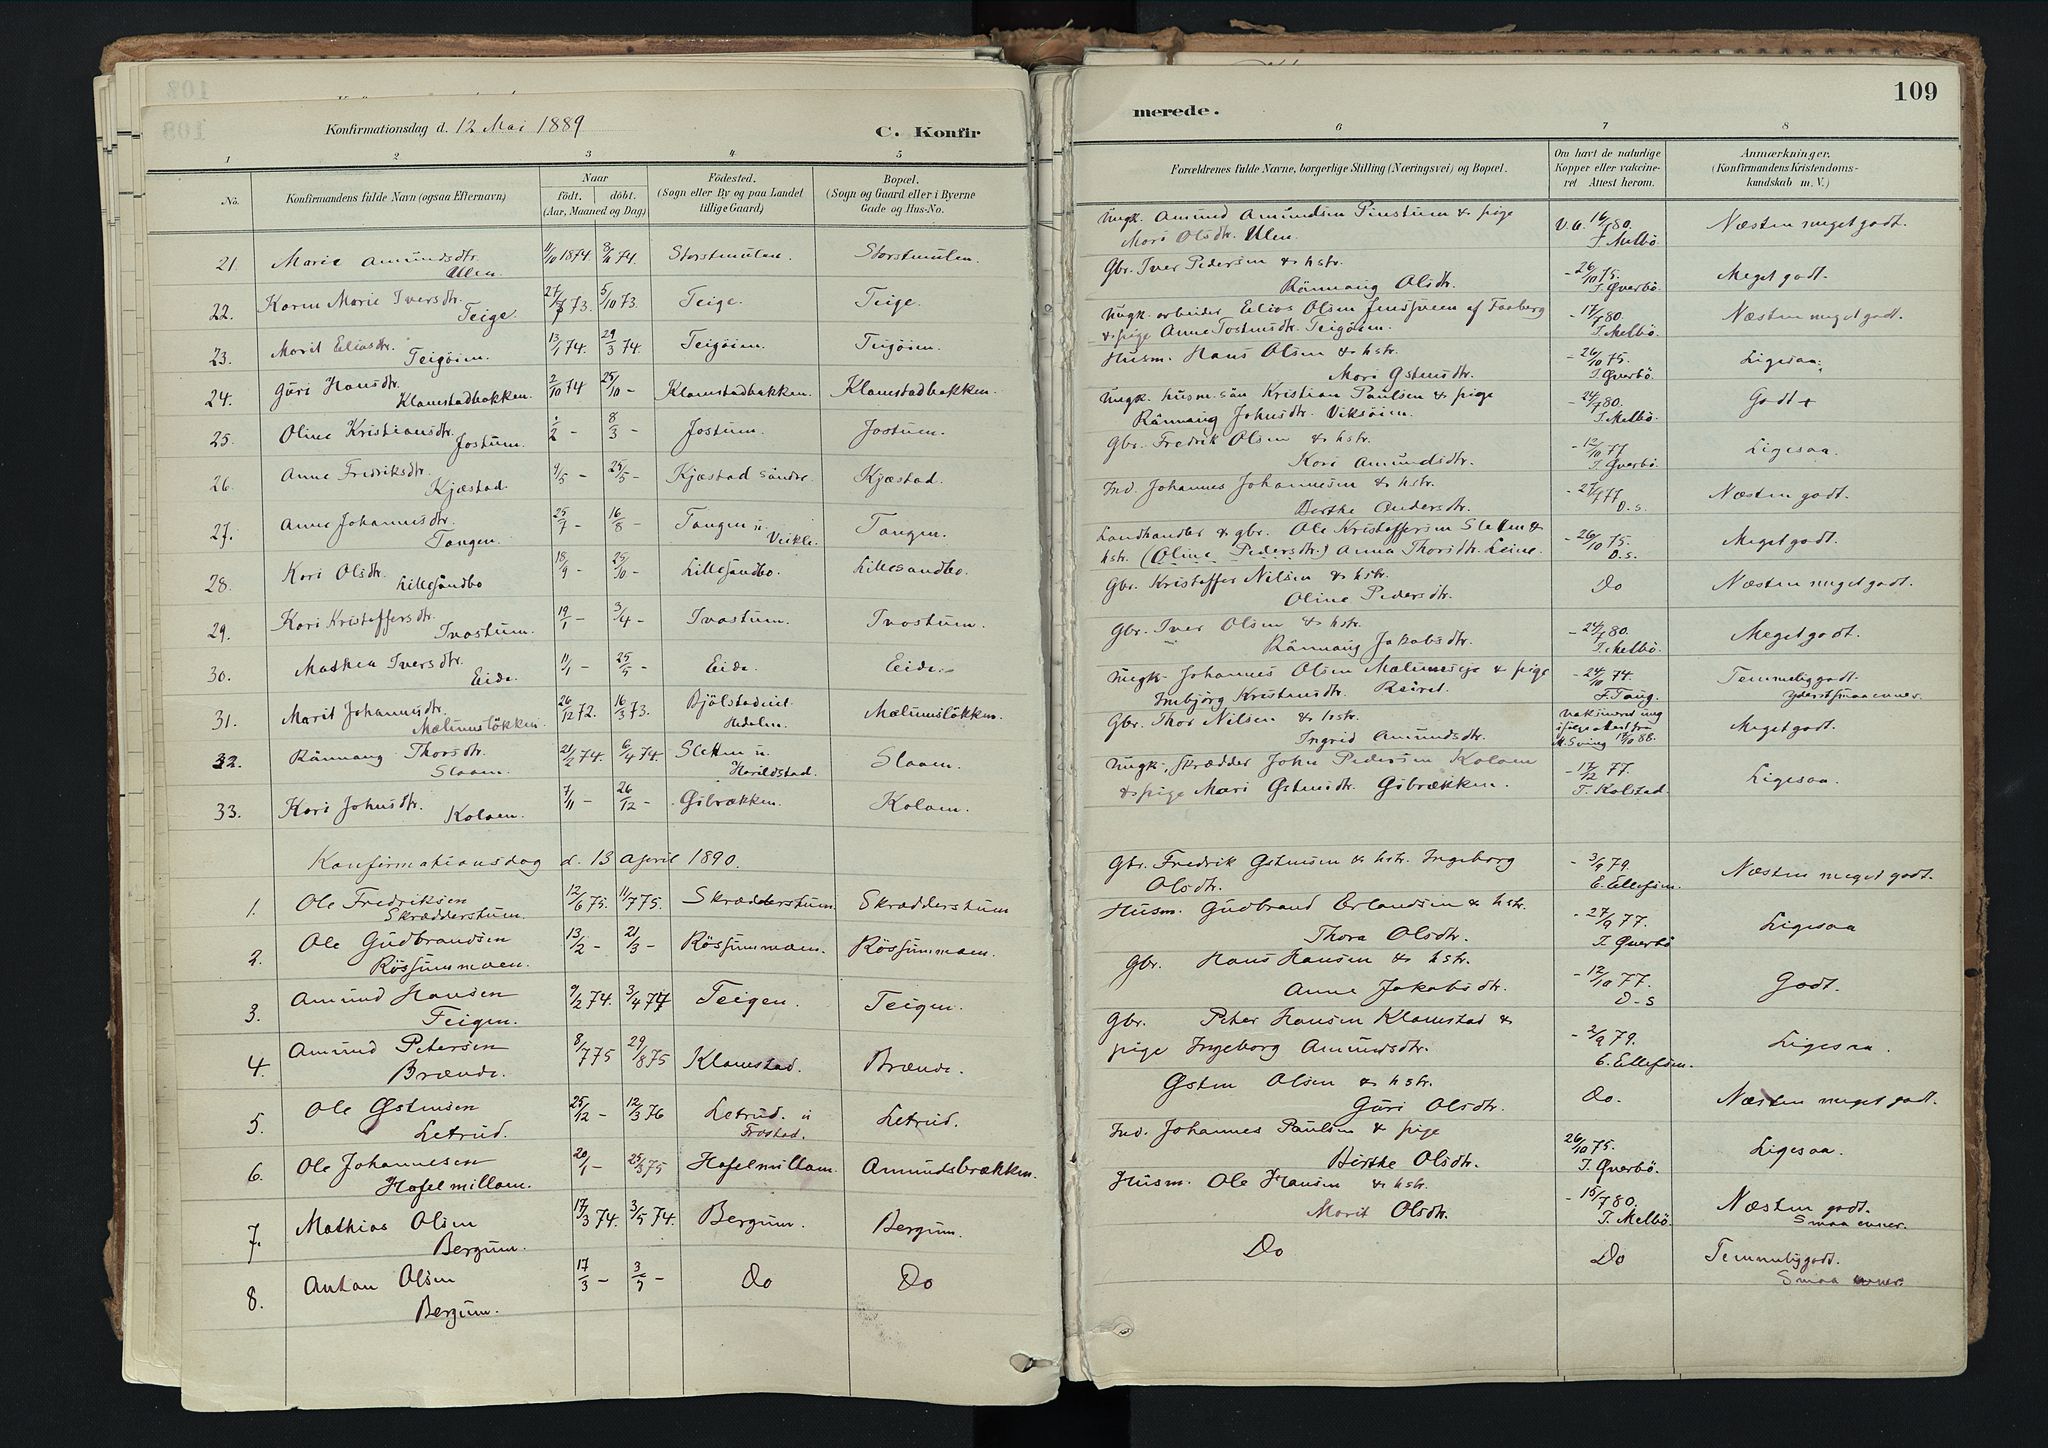 Konfirmationsdag d. 12 Mai 1889
C. Konfir
1 2 3 4 5
No.
Konfirmandens fulde Navn (ogsaa Efternavn)
Naar
födt. döbt.
(Aar, Maaned og Dag)
Födested.
(Sogn eller By og paa Landet
tillige Gaard)
Bopæl.
(Sogn og Gaard eller i Byerne
Gade og Hus-No.
21 Marie Amundsdtr. 11/10 1874. 74. Storstmulen. Storstmulen.
Ulen
22. Karen Marie Iversdtr. 73. 5/10 73. Teige. Teige.
Teige
23. Marit Eliasdtr. 13/1 74. 29/3 74. Teigöien. Teigöien.
Teigöien
24. Guri Hansdtr. 2/10 74 25/10 - Klamstadbakken. Klamstadbakken.
Klamstadbakken.
25. Oline Kristiansdtr. 8/3 - Jostum. Jostum.
Jostum.
26. Anne Fredriksdtr. 4/5 - 25/5 - Kjæstad söndre Kjæstad.
Kjæstad
27. Anne Johannesdtr. 25/7 - 16/8 - Tangen u. Tangen.
Tangen. Veikle.
28. Kari Olsdtr. 18/9 - 25/10 - Lillesandbo. Lillesandbo.
Lillesandbo
29. Kari Kristoffersdtr. 19/1 - 3/4 - Ivastum. Ivostum.
Ivastum.
30. Mathea Iversdtr. 11/1 - 25/5 - Eide. Eide.
Eide.
31. Marit Johannesdtr. 26/12 72. 16/3 73. Bjölstadeiet Mælumslökken.
Mælumslökken Hedalen.
32. Rönnaug Thorsdtr. 21/2 74. 6/4 74. Sletten u. Slaaen.
Slaaen. Harildstad.
33. Kari Johnsdtr. 7/11 - 26/12 - Gsbrækken. Kolaen.
Kolaen.
Konfirmationsdag d. 13 April 1890.
1. Ole Fredriksen 12/6 75. 11/7 75. Skrædderstum. Skrædderstum
Skrædderstum.
2. Ole Gudbrandsen 13/2 - 21/3 - Rössummoen. Rössummoen.
Rössummoen.
3. Amund Hansen 9/2 74. 3/4 74 Teigen. Teigen.
Teigen.
4. Amund Petersen 8/7 75 29/8 75 Klamstad. Brænde.
Brænde.
5. Ole Østensen 25/12 - 12/3 76 Letrud. u Letrud.
Letrud. Frostad.
6. Ole Johannesen 20/1 - 75 Hafelmillom. Amundsbrækken.
Hafelmillom.
7. Mathias Olsen 17/3 74. 3/5 74. Bergum. Bergum.
Bergum.
8. Anton Olsen 17/3 - 3/5 - Do Do
Bergum.
109
merede.
6 7 8
Forældrenes fulde Navne, borgerlige Stilling (Næringsvei) og Bopæl.
Om havt de naturlige
Kopper eller vaccine-
ret Attest herom.
Anmærkninger.
(Konfirmandens Kristendoms-
kundskab m. V.)
Ungk. Amund Amundsen Pinstuen & pige V. a. 16/7 80. Næsten meget godt.
Mari Olsdtr. Ulen. F. Melbö
Gbr. Iver Pedersen & hstr. - 26/10 75. Meget godt.
Rönnaug Olsdtr. T. Øverbö.
Ungk. arbeider Elias Olsen Jensveen af Faaberg - 17/7 80. Næsten meget godt.
& pige Anne Tostensdtr. Teigöien. T. Melbö.
Husm. Hans Olsen & hstr. - 26/10 75. Ligesaa.
Mari Østensdtr. T. Øverbö.
Ungk. husm. sön Kristian Paulsen & pige - 24/7 80. Godt +
Rönnaug Johnsdtr. Viksöien. T. Melbö.
Gbr. Fredrik Olsen & hstr. - 12/10 77 Ligesaa.
Kari Amundsdtr. T. Øverbö.
Ind. Johannes Johannesen & hstr. - 27/7 77. Næsten godt.
Berthe Andersdtr. D. s.
Landhandler & gbr. Ole Kristoffersen Sletten & - 26/10 75. Meget godt.
hstr. (Oline Pedersdtr.) Anna Thorsdtr. Leine. D. s.
Gbr. Kristoffer Nilsen & hstr. Do Næsten meget godt.
Oline Pedersdtr.
Gbr. Iver Olsen & hstr. - 24/7 80. Meget godt.
Rönnaug Jakobsdtr. T. Melbö.
Ungk. Johannes Olsen Mælumseje & pige - 24/10 74. Temmelig godt.
Imbjörg Kristensdtr. F. Taug. Yderst smaa evner.
Gbr. Thor Nilsen & hstr. Meget godt.
Ingrid Amundsdtr. 88.
Ungk. skrædder John Pedersen Kolaen - 17/12 77. Ligesaa.
& pige Mari Østensdtr. Gsbrækken. T. Kolstad.
Gbr. Fredrik Østensen & hstr. Ingeborg - 3/9 79. Næsten meget godt.
Olsdtr. E. Ellefsen.
Husm. Gudbrand Erlandsen & hstr. - 27/9 77. Ligesaa
Thora Olsdtr. T. Øverbö
Gbr. Hans Hansen & hstr. - 12/10 77. Godt.
Anne Jakobsdtr. D. s
Gbr. Peter Hansen Klamstad & - 2/9 79. Ligesaa.
pige Ingeborg Amundsdtr. E. Ellefsen.
Østen Olsen & hstr. Do. Næsten meget godt.
Guri Olsdtr.
Ind. Johannes Paulsen & pige 26/10 75. Ligesaa.
Birthe Olsdtr. T. Øverbö.
Husm. Ole Hansen & hstr. - 15/7 80. Næsten godt.
Marit Olsdtr. T. Melbö. Smaa evner.
Do Do Temmelig godt.
Smaa evner.